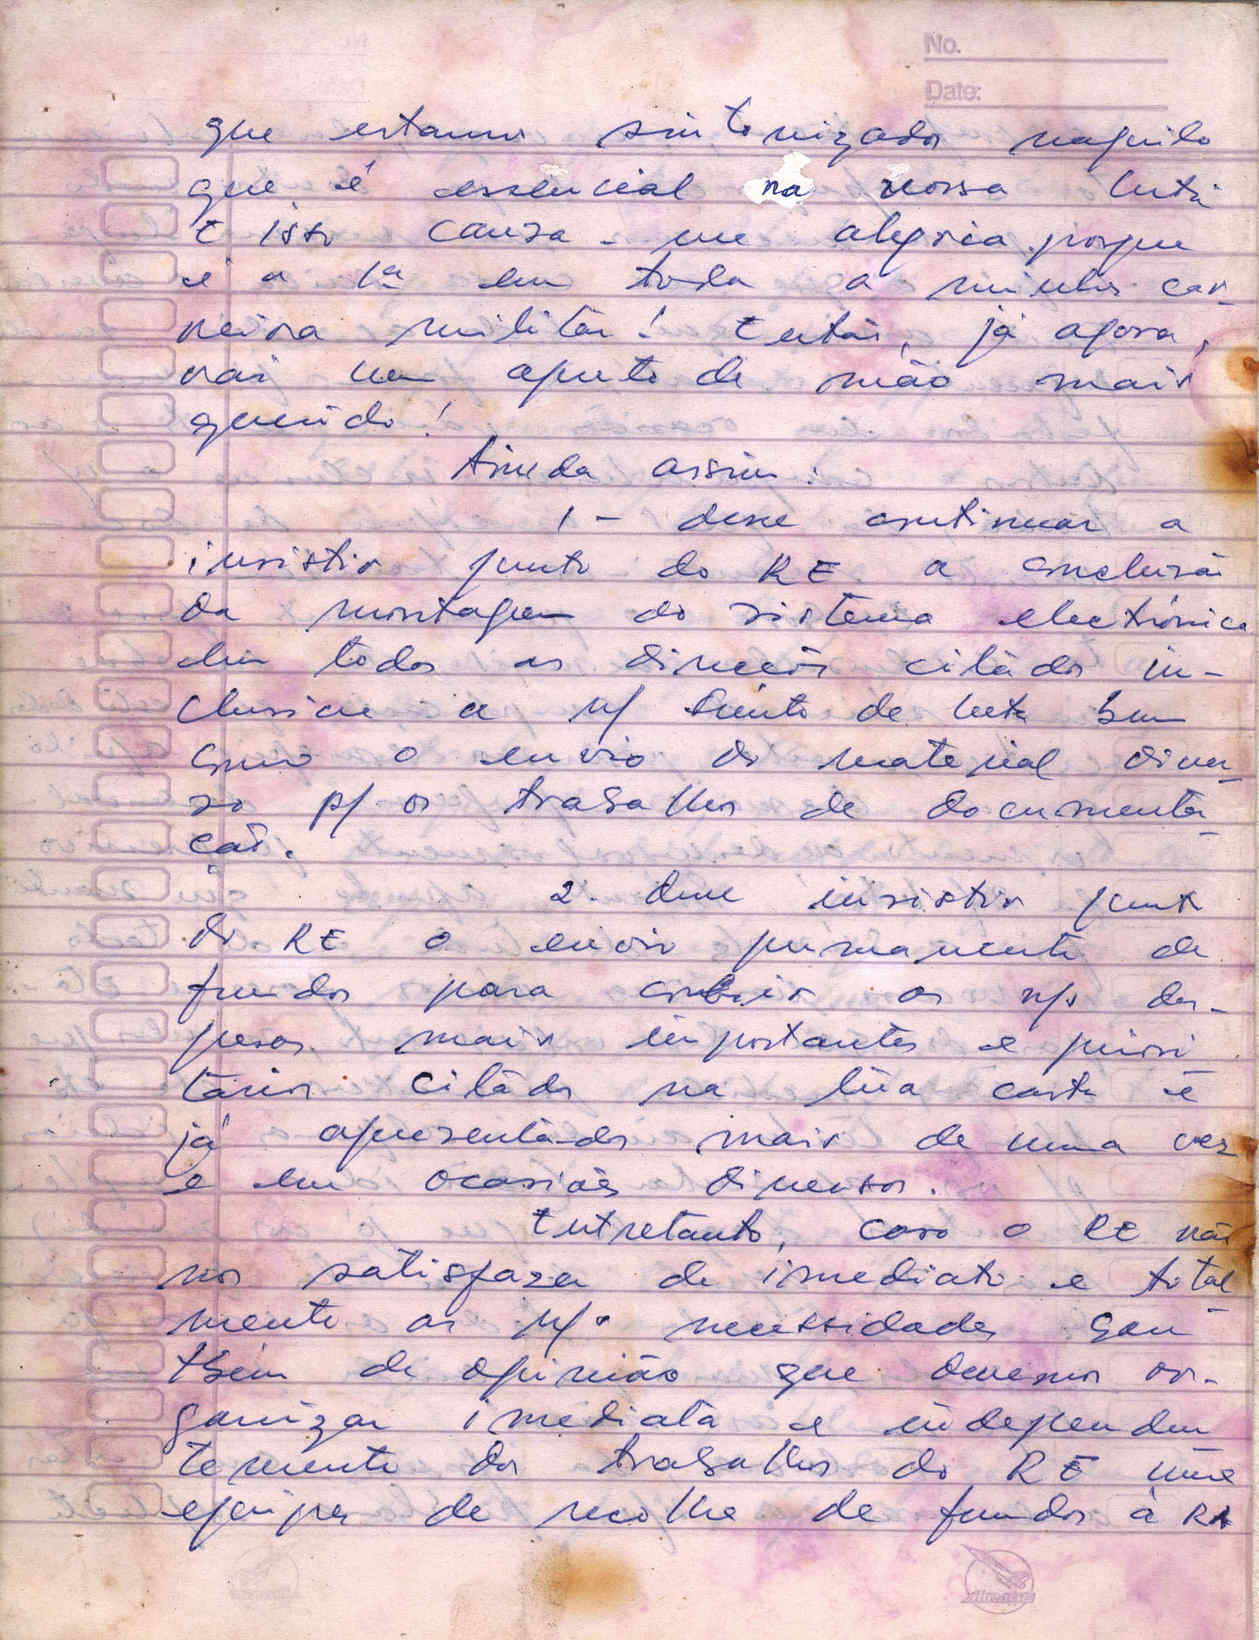 No.
Date:
que estamos sintonizados naquilo
que é essencial na nossa luta
E isso causa-me alegria porque
é a 1ª em toda a minha car-
reira militar! Então, já agora,
vai um aperto de mão mais
querido!
Ainda assim:
1 - deve continuar a
insistir junto do RE a conclusão
da montagem do sistema electrónico
em todas as direcções citadas in-
clusive a n/ Frente de luta bem
como o envio do material diver-
so p/ os trabalhos de documenta-
ção.
2. deve insistir junto
do RE o envio permanente de
fundos para cobrir as n/s des-
pesas mais importantes e priori
tárias citadas na tua carta e
já apresentadas mais de uma vez
e em ocasiões diversas.
Entretanto, caso o RE não
nos satisfazer de imediato e total-
mente as n/s necessidades sou
tbém de opinião que devemos or-
ganizar imediata e independen
temente dos trabalhos do RE uma
equipa de recolha de fundos à RA